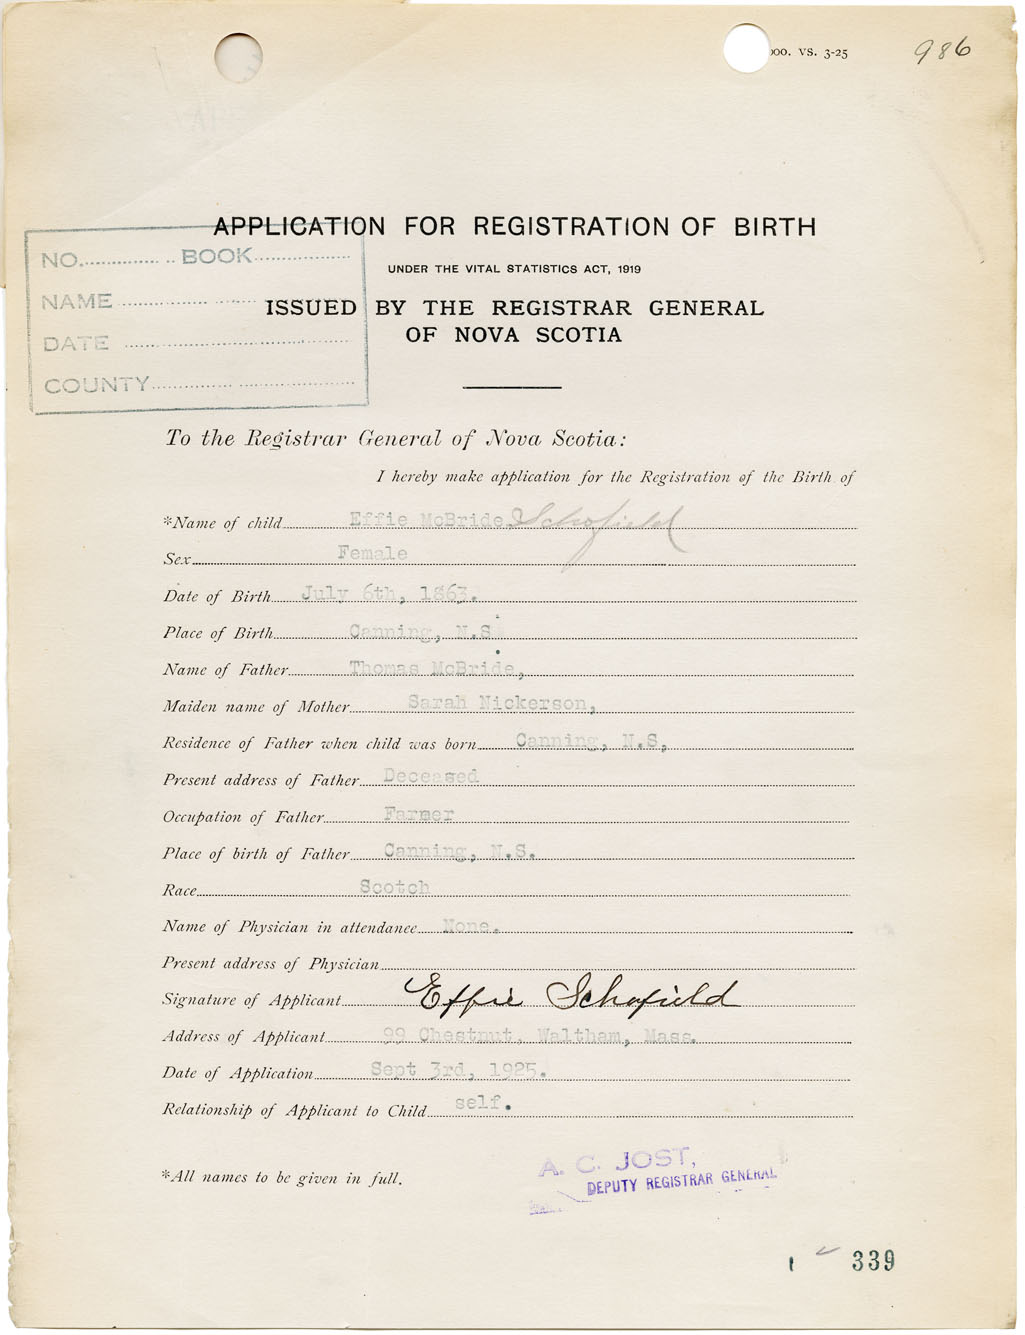 00. VS. 3-25
986
APPLICATION FOR REGISTRATION OF BIRTH
UNDER THE VITAL STATISTICS ACT, 1919
ISSUED BY THE REGISTRAR GENERAL
OF NOVA SCOTIA
NO. BOOK
NAME
DATE
COUNTY
To the Registrar General of Nova Scotia:
I hereby make application for the Registration of the Birth of
*Name of child Effie McBride Schofield
Sex Female
Date of Birth July 6th, 1863.
Place of Birth Canning, N.S.
Name of Father Thomas McBride,
Maiden name of Mother Sarah Nickerson,
Residence of Father when child was born Canning, N.S,
Present address of Father Deceased
Occupation of Father Farmer
Place of birth of Father Canning, N.S.
Race Scotch
Name of Physician in attendance None.
Present address of Physician
Signature of Applicant Effie Schofield
Address of Applicant 99 Chestnut, Waltham, Mass.
Date of Application Sept 3rd, 1925.
Relationship of Applicant to Child self.
*All names to be given in full.
A. C. JOST,
DEPUTY REGISTRAR GENERAL
339